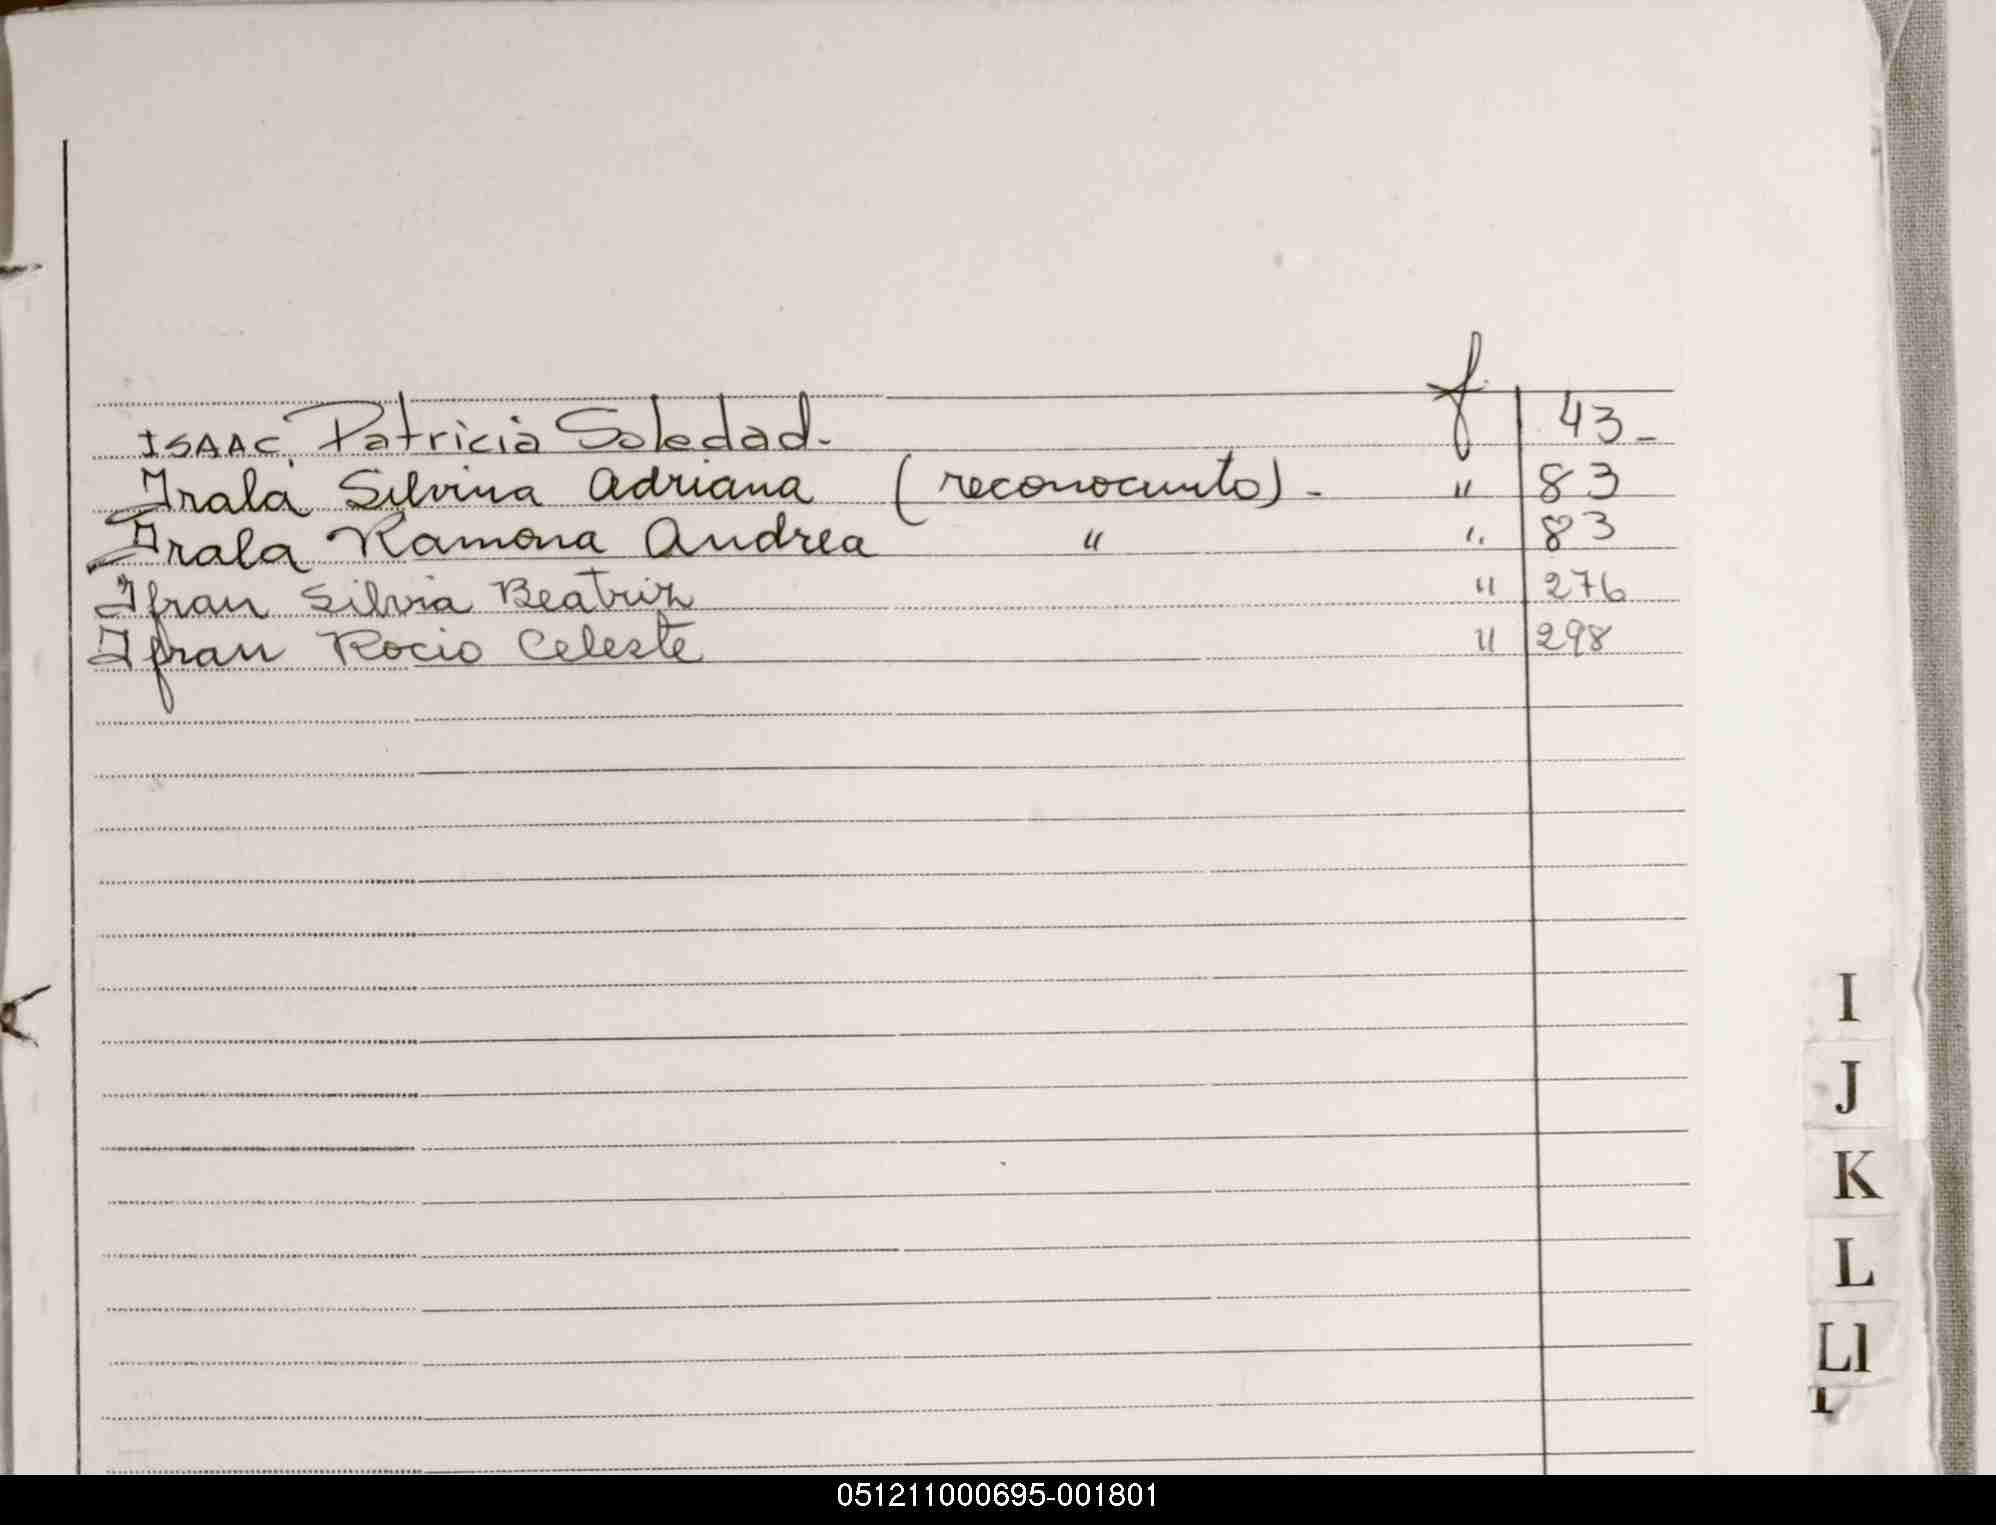 f.
ISAAC, Patricia Soledad. 43-
Irala Silvina Adriana (reconocimto) - " 83
Irala Ramona Andrea " " 83
Ifran Silvia Beatriz " 276
Ifran Rocio Celeste " 298
I
J
K
L
Ll
051211000695-001801